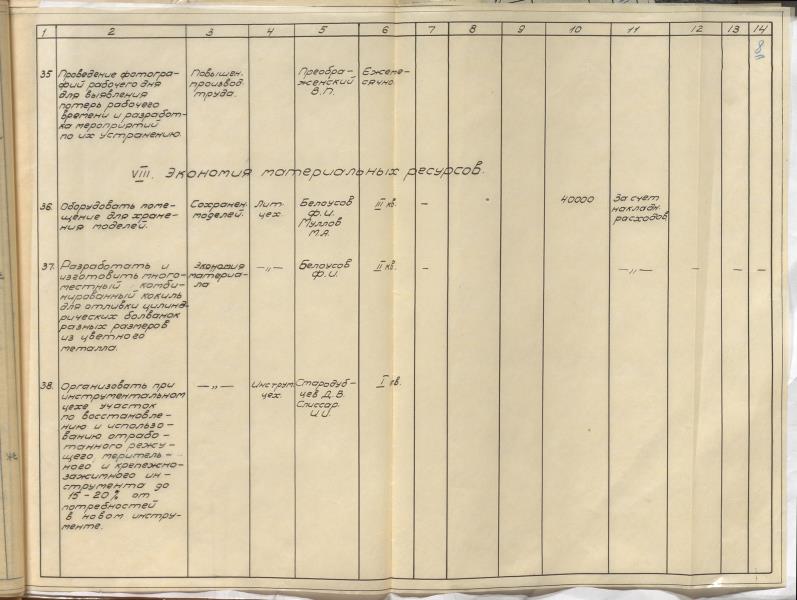 1 2 3 4 5 6 7 8 9 10 11 12 13 14
8
35 Проведение фотогра-
фий рабочего дня
для выявления
потерь рабочего
времени и разработ-
ка мероприятий
по их устранению.
Повышен.
производ.
труда.
Преобра-
женский
В.П.
Ежеме-
сячно.
VIII. Экономия материальных ресурсов.
36. Оборудовать поме-
щение для хране-
ния моделей.
Сохранен.
моделей.
Лит.
цех.
Белоусов
Ф.И.
Муллов
М.А.
III кв.
–
40000
За счет
накладн.
расходов
37. Разработать и
изготовить много-
местный комби-
нированный кокиль
для отливки цилинд-
рических болванок
разных размеров
из цветного
металла.
Экономия
материа-
ла
—„—
Белоусов
Ф.И.
II кв.
–
—„—
– – –
38. Организовать при
инструментальном
цехе участок
по восстановле-
нию и использо-
ванию отрабо-
танного режу-
щего меритель-
ного и крепежно-
зажимного ин-
струмента до
15-20% от
потребностей
в новом инстру-
менте.
—„—
Инструм.
цех.
Стародуб-
цев Д.В.
Слиссар.
И.И.
I кв.